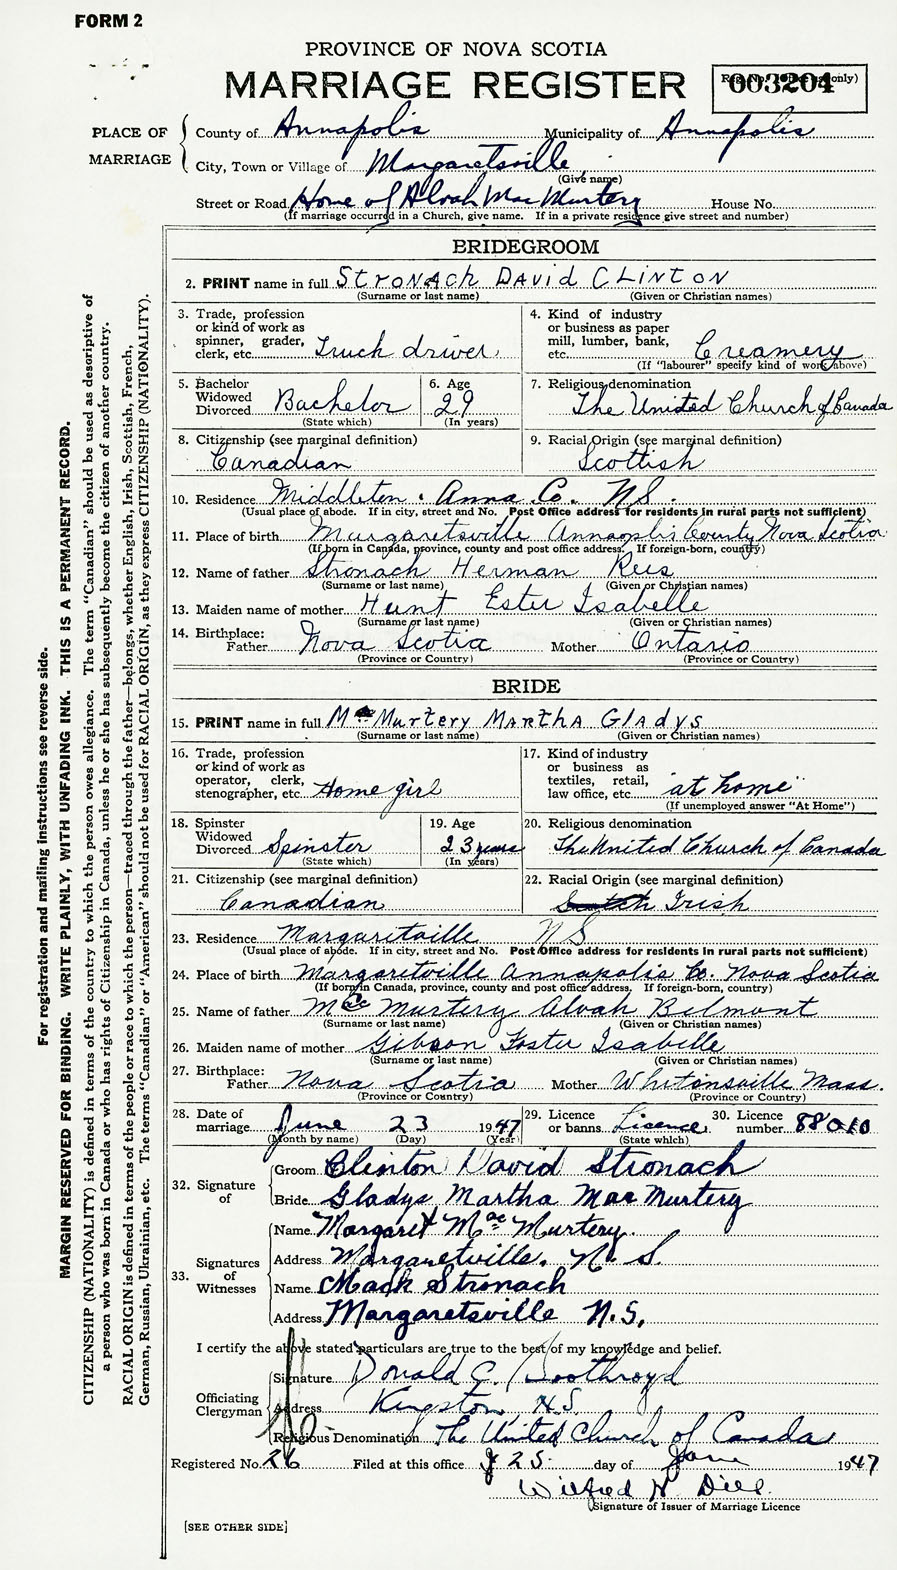 FORM 2
PROVINCE OF NOVA SCOTIA
MARRIAGE REGISTER
Reg. No. (Office use only)
003204
PLACE OF MARRIAGE
County of Annapolis Municipality of Annapolis
City, Town or Village of Margaretsville
(Give name)
Street or Road Home of Alvah MacMurtery House No.
(If marriage occurred in a Church, give name. If in a private residence give street and number)
BRIDEGROOM
2. PRINT name in full STRONACH DAVID CLINTON
(Surname or last name) (Given or Christian names)
3. Trade, profession or kind of work as spinner, grader, clerk, etc. Truck driver
4. Kind of industry or business as paper mill, lumber, bank, etc. Creamery
(If "labourer" specify kind of work above)
5. Bachelor Widowed Divorced Bachelor
(State which)
6. Age 29
(In years)
7. Religious denomination The United Church of Canada
8. Citizenship (see marginal definition) Canadian
9. Racial Origin (see marginal definition) Scottish
10. Residence Middleton. Anna Co. N.S.
(Usual place of abode. If in city, street and No. Post Office address for residents in rural parts not sufficient)
11. Place of birth Margaretsville Annaoplis County Nova Scotia
(If born in Canada, province, county and post office address. If foreign-born, country)
12. Name of father Stronach Herman Rees
(Surname or last name) (Given or Christian names)
13. Maiden name of mother Hunt Ester Isabelle
(Surname or last name) (Given or Christian names)
14. Birthplace: Father Nova Scotia Mother Ontario
(Province or Country) (Province or Country)
BRIDE
15. PRINT name in full MacMurtery MARTHA GLADYS
(Surname or last name) (Given or Christian names)
16. Trade, profession or kind of work as operator, clerk, stenographer, etc. Home girl
17. Kind of industry or business as textiles, retail, law office, etc. "at home"
(If unemployed answer "At Home")
18. Spinster Widowed Divorced Spinster
(State which)
19. Age 23 years
(In years)
20. Religious denomination The United Church of Canada
21. Citizenship (see marginal definition) Canadian
22. Racial Origin (see marginal definition) Scotch Irish
23. Residence Margaretville N.S.
(Usual place of abode. If in city, street and No. Post Office address for residents in rural parts not sufficient)
24. Place of birth Margaretville Annapolis Co. Nova Scotia
(If born in Canada, province, county and post office address. If foreign-born, country)
25. Name of father Mac Murtery Alvah Belmont
(Surname or last name) (Given or Christian names)
26. Maiden name of mother Gibson Foster Isabelle
(Surname or last name) (Given or Christian names)
27. Birthplace: Father Nova Scotia Mother Whitonsville Mass.
(Province or Country) (Province or Country)
28. Date of marriage June 23 1947
(Month by name) (Day) (Year)
29. Licence or banns Licence
(State which)
30. Licence number 88010
32. Signature of
Groom Clinton David Stronach
Bride Gladys Martha MacMurtery
33. Signatures of Witnesses
Name Margaret Mac Murtery
Address Margaretville. N. S.
Name Mack Stronach
Address Margaretsville N.S.
I certify the above stated particulars are true to the best of my knowledge and belief.
Officiating Clergyman
Signature Donald G. Boothroyd
Address Kingston, N.S.
Religious Denomination The United Church of Canada
Registered No. 26 Filed at this office 25 day of June 1947
Wilfred N. Dill.
Signature of Issuer of Marriage Licence
[SEE OTHER SIDE]
For registration and mailing instructions see reverse side.
MARGIN RESERVED FOR BINDING. WRITE PLAINLY, WITH UNFADING INK. THIS IS A PERMANENT RECORD.
CITIZENSHIP (NATIONALITY) is defined in terms of the country to which the person owes allegiance. The term "Canadian" should be used as descriptive of
a person who was born in Canada or who has rights of Citizenship in Canada, unless he or she has subsequently become the citizen of another country.
RACIAL ORIGIN is defined in terms of the people or race to which the person—traced through the father—belongs, whether English, Irish, Scottish, French,
German, Russian, Ukrainian, etc. The terms "Canadian" or "American" should not be used for RACIAL ORIGIN, as they express CITIZENSHIP (NATIONALITY).